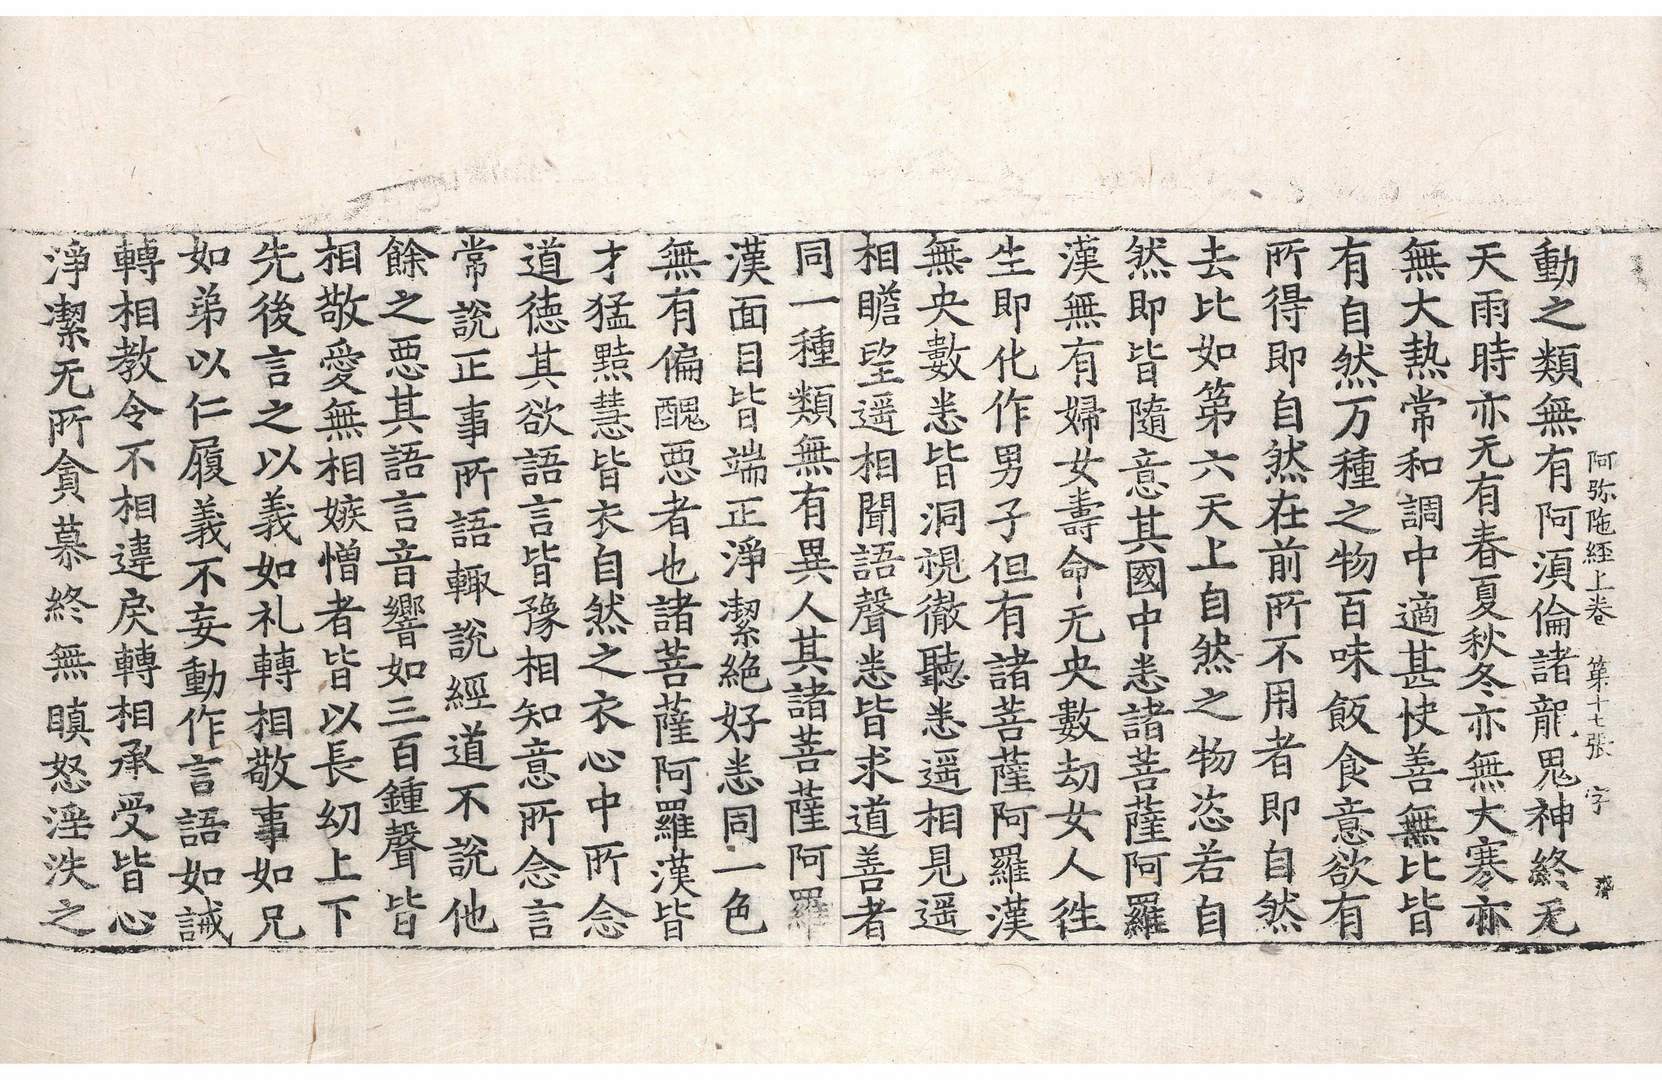 阿弥陁經上卷　第十七張　字
動之類無有阿湏倫諸龍鬼神終无
天雨時亦无有春夏秋冬亦無大寒亦
無大熱常和調中適甚快善無比皆
有自然万種之物百味飯食意欲有
所得即自然在前所不用者即自然
去比如第六天上自然之物恣若自
然即皆隨意其國中悉諸菩薩阿羅
漢無有婦女壽命无央數劫女人徃
生即化作男子但有諸菩薩阿羅漢
無央數悉皆洞視徹聽悉遥相見遥
相瞻望遥相聞語聲悉皆求道善者
同一種類無有異人其諸菩薩阿羅
漢面目皆端正淨潔絶好悉同一色
無有偏醜惡者也諸菩薩阿羅漢皆
才猛黠慧皆衣自然之衣心中所念
道德其欲語言皆豫相知意所念言
常說正事所語輙說經道不說他
餘之惡其語言音響如三百鍾聲皆
相敬愛無相嫉憎者皆以長幼上下
先後言之以義如礼轉相敬事如兄
如弟以仁履義不妄動作言語如誡
轉相教令不相違戾轉相承受皆心
淨潔无所貪慕終無瞋怒淫泆之